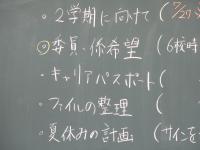 ・2学期に向けて(7/27
・委員・係希望(6校時
・キャリアパスポート(
・ファイルの整理(
・夏休みの計画(サインを